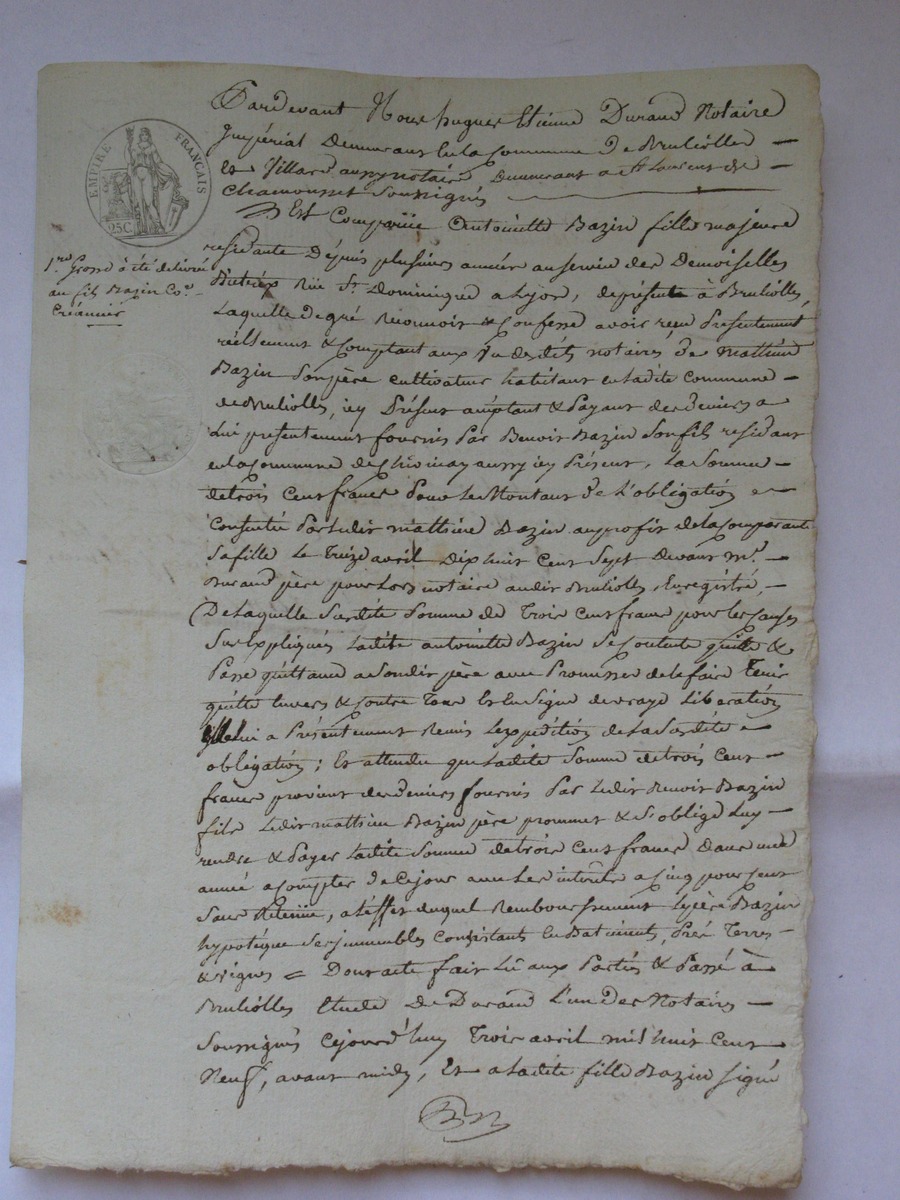 Pardevant Nous hugues Etienne Durand Notaire
Impérial Demeurant En la Commune De Brulliolles
Et Villard aussy notaire Demeurant a St Laurent de
Chamousset Soussignés
EMPIRE FRANÇAIS
25C
Est Comparüe Antoinette Bazin fille majeure
residante Depuis plusieurs année au service des Demoiselles
Rüe St Dominique a Lyon, de présente à Brulliolles,
1re Grosse à été délivré
au fils Bazin Co.
Créancier
Laquelle de gré Reconnoit & Confesse avoir reçu Presentement
réellement & Comptant aux vu desdits notaires de Matthieu
Bazin Son père cultivateur habitant en ladite Commune
de Brulliolles, icy Présent acceptant & Payant des deniers a
Lui presentement fournis Par Benoit Bazin Son fils residant
en la Commune de aussy icy Présent, La Somme
de trois Cent francs Pour Le Montant De L'obligation
Consentie Par Ledit matthieu Bazin au profit de la Comparante
Sa fille Le Treize avril Dix huit Cent Sept devant me
Durand père pour Lors notaire audit Brulliolles, Enregistré,
De Laquelle Susdite Somme de Trois Cent franc pour les Causes
Sus Expliquées Ladite antoinette Bazin Se Contente quitte &
Passe quittance a Son dit père avec Promesse de le faire Tenir
quitte Envers & Contre Tous Et En Signe de vraye Libération
Lui a Présentement Remis L'expédition de La Susdite
obligation; Et attendu que Ladite Somme de trois Cent
francs provient des Deniers fournis Par Ledit Benoit Bazin
fils Ledit matthieu Bazin père promet & S'oblige Luy
rendre & Payer Ladite Somme de trois Cent francs Dans une
année a Compter De Ce jour avec Les intérêts a Cinq pour Cent
Sans Retenüe, a L'effet duquel Remboursement Bazin
hypotèque Ses immeubles Consistants En Batiments, Prés Terres
& vignes = Dont acte fait Lû aux Parties & Passé à
Brulliolles Etude De Durand L'un Des Notaires
Soussignés Cejourd'huy Trois avril mil huit Cent
Neuf, avant midy, Et a Ladite fille Bazin signé